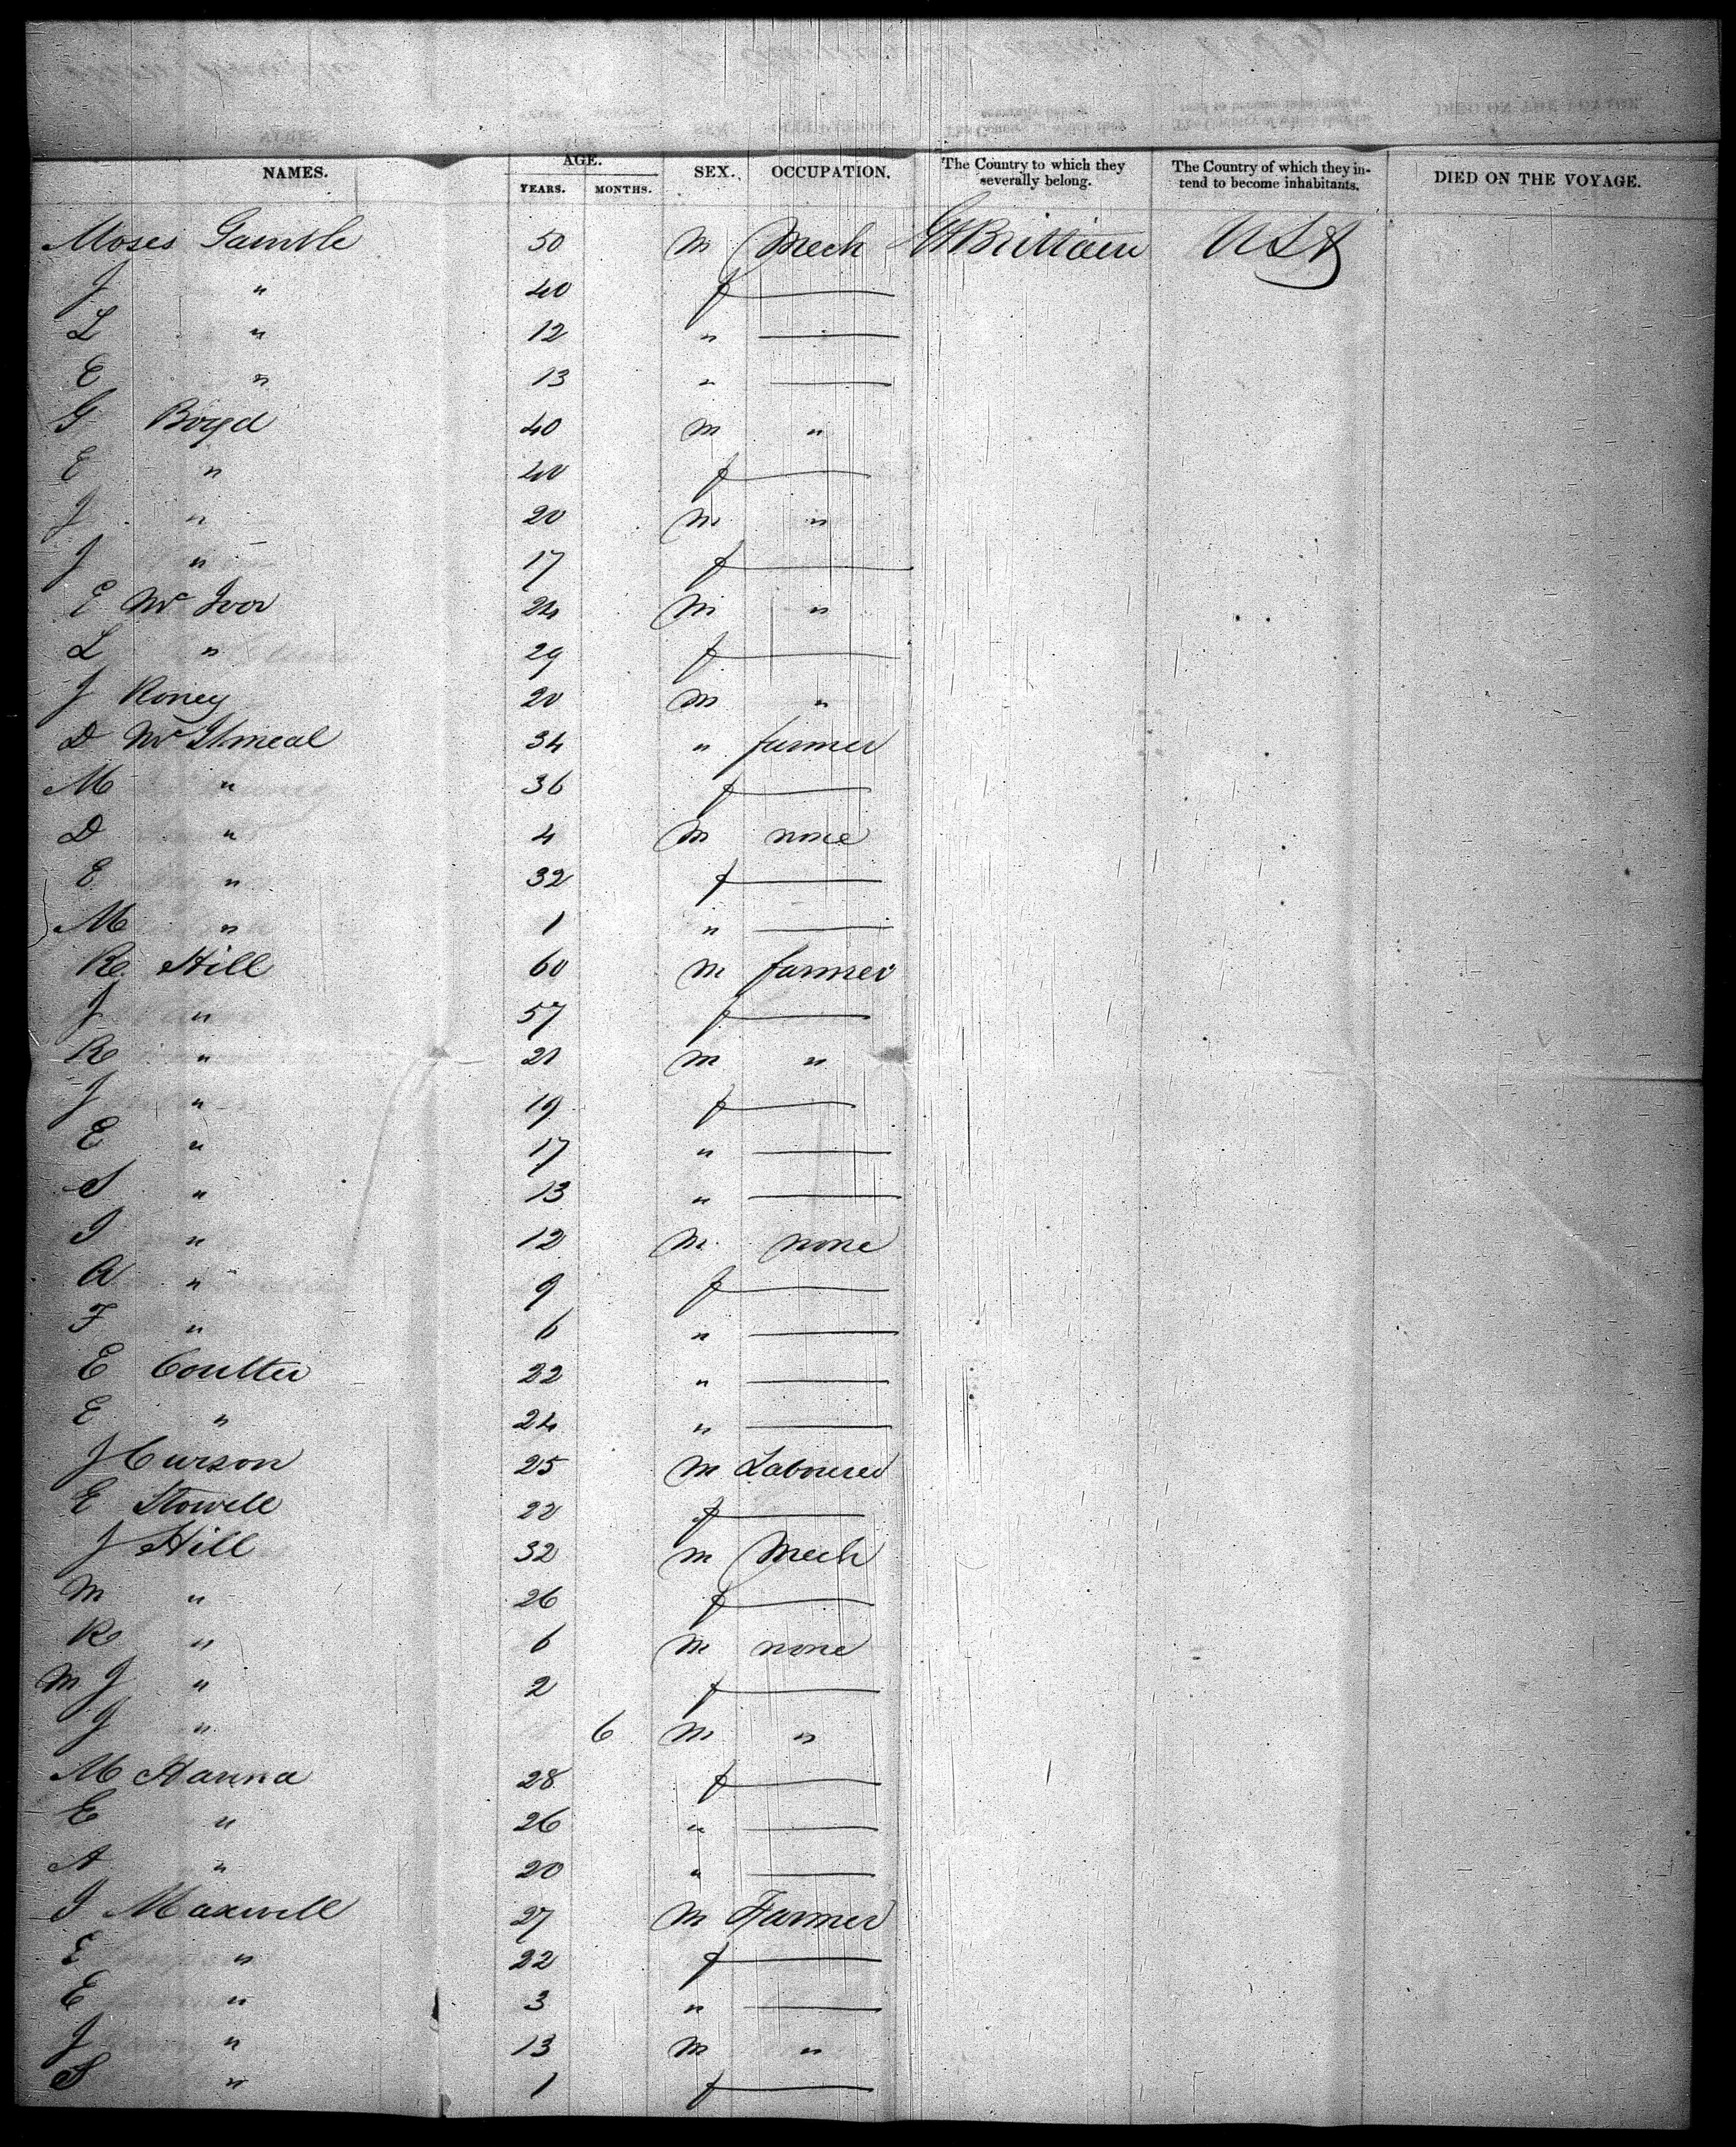 NAMES. AGE. YEARS. MONTHS. SEX. OCCUPATION. The Country to which they severally belong. The Country of which they intend to become inhabitants. DIED ON THE VOYAGE.
Moses Gamble 50 m Mech Gt Brittain USA
J " 40 f —
L " 12 " —
E " 13 " —
G Boyd 40 m "
E " 40 f —
J " 20 m "
J " 17 f —
E Mc Ivor 24 m "
L " 29 f —
J Roney 20 m "
D Mc Ilmeal 34 " farmer
M " 36 f —
D " 4 m none
E " 32 f —
M " 1 " —
R Hill 60 m farmer
J " 57 f —
R " 21 m "
J " 19 f —
E " 17 " —
S " 13 " —
I " 12 m none
A " 9 f —
F " 6 " —
E Coulter 22 " —
E " 24 " —
J Curson 25 m Labourer
E Stowell 22 f —
J Hill 32 m Mech
M " 26 f —
R " 6 m none
M J " 2 f —
J " 6 m "
M Hanna 28 f —
E " 26 " —
A " 20 " —
I Maxwell 27 m Farmer
E " 22 f —
E " 3 " —
J " 13 m "
S " 1 f —